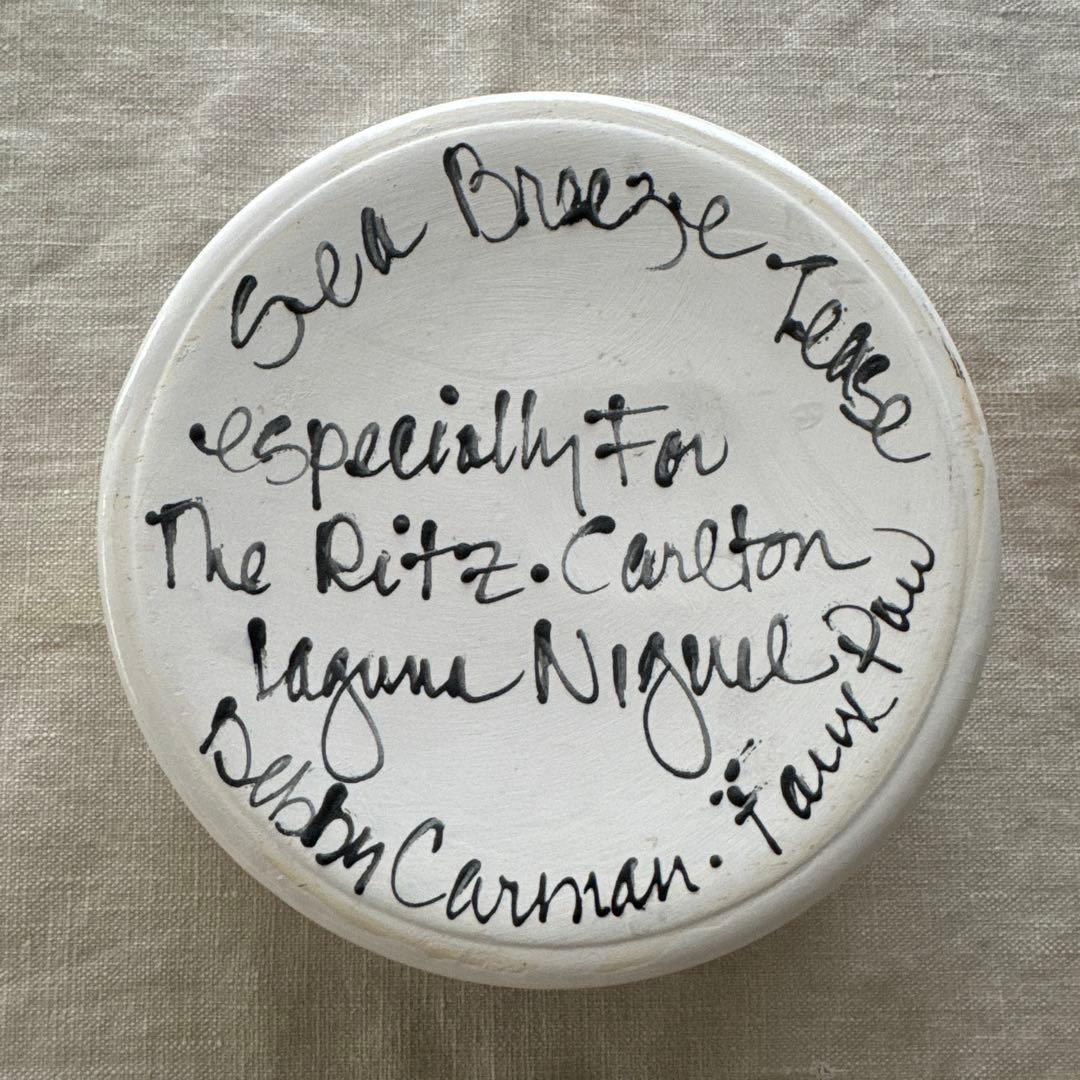 Sea Breeze Tease
especially For
The Ritz. Carlton
Laguna Niguel
Debby Carman. Faux Paw